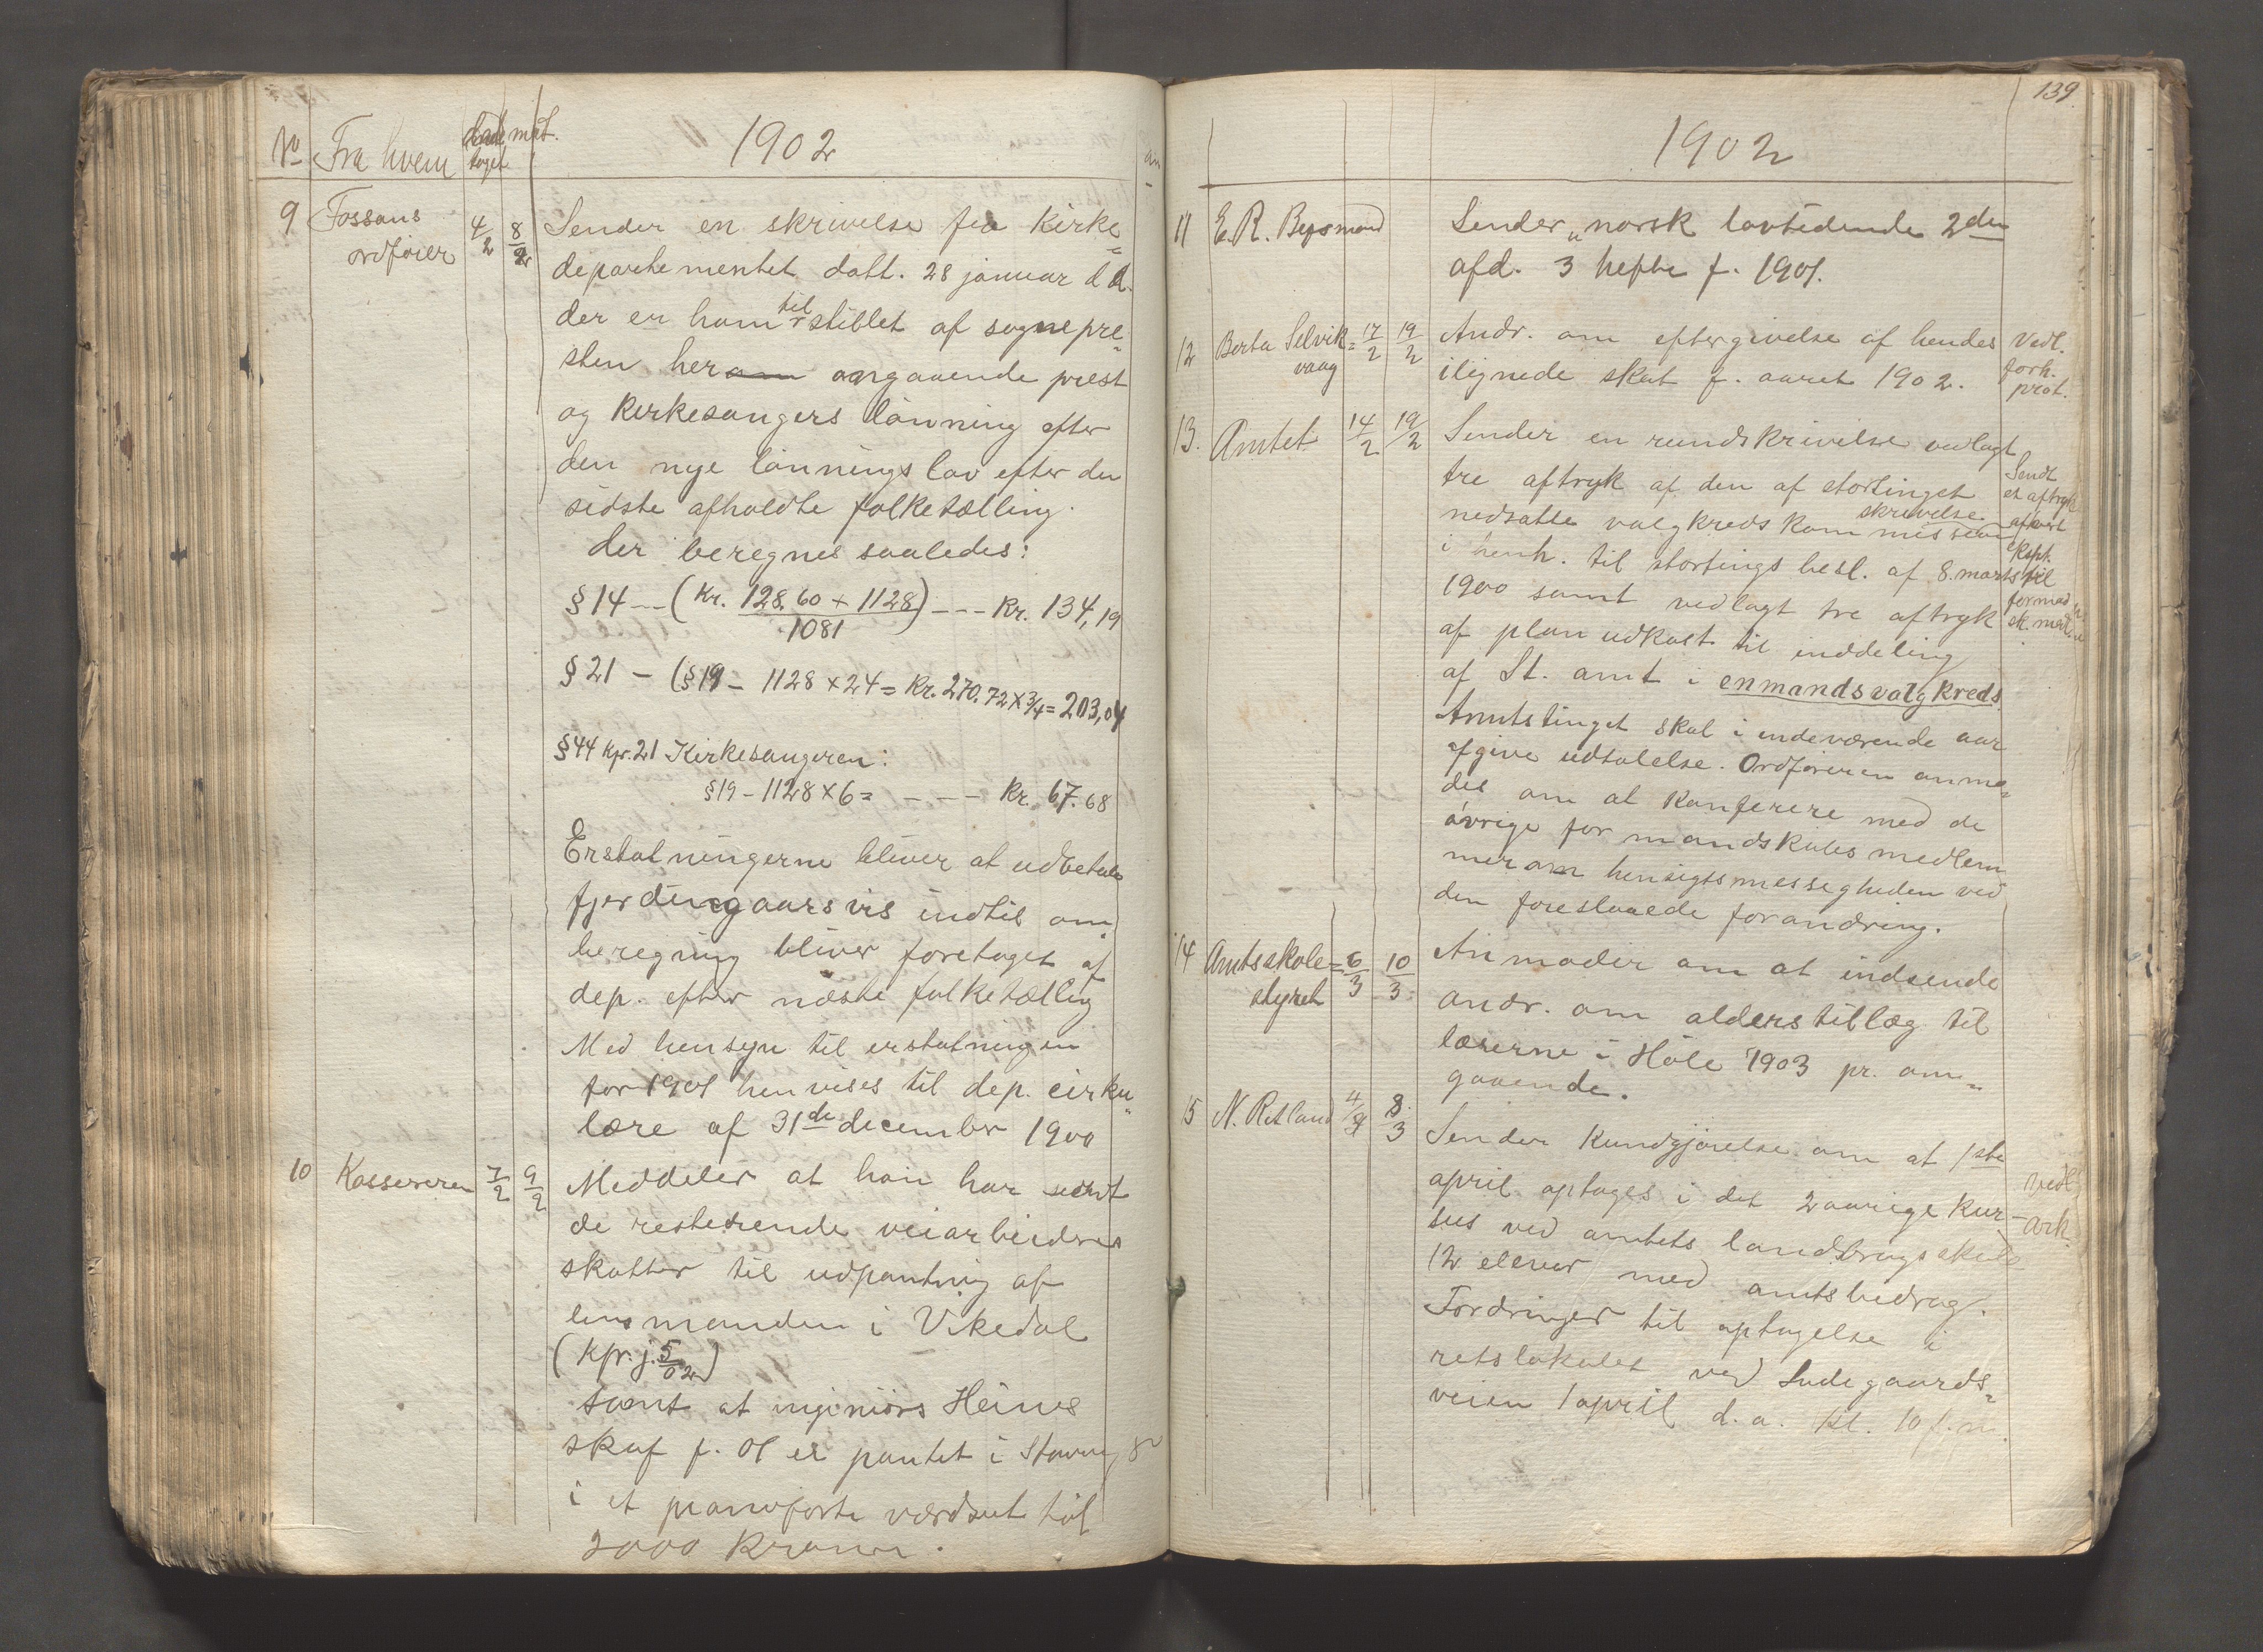 1902
No Fra hvem mot.
9 Fossans ordfører 4/2 8/2 Sender en skrivelse fra kirke=
departementet datt. 28 januar d.a.
der er ham tilstillet af sognepre=
sten her angaaende prest
og kirkesangers lønning efter
den nye lønningslov efter den
sidste afholdte folketælling.
der beregnes saaledes:
§ 14 -- (Kr. 128.60 + 1128 / 1081) --- Kr. 134,19
§ 21 - (§ 19 - 1128 × 24 = Kr. 270.72 × 3/4 = 203,04
§ 44 kfr. 21 Kirkesangeren:
§ 19 - 1128 × 6 = - - - - Kr. 67.68
Erstatningerne bliver at udbetale
fjerdingaarsvis indtil om=
beregning bliver foretaget af
dep. efter næste folketælling
Med hensyn til erstatningen
for 1901 henvises til dep. cirku=
lære af 31de december 1900
10 Kassereren 7/2 9/2 Meddeler at han har sendt
de resterende veiarbeideres
skatter til udpantning af
lensmanden i Vikedal
(kfr. j. 5/02)
samt at ingeniørs Heines
skat f. 01 er pantet i Stavang
i et pianoforte værdsat til
2000 kroner.
139.
1902
11 E. R. Sender "norsk lovtidende 2den
afd. 3 hefte f. 1901.
12 Berta Selvik=
vaag 17/2 19/2 Andr. om eftergivelse af hendes
ilignede skat f. aaret 1902.
Vedl.
forh.
prot.
13. Amtet 14/2 19/2 Sender en rundskrivelse vedlagt
tre aftryk af den af stortinget
nedsatte valgkredskommissions skrivelse
i henh. til stortings besl. af 8. marts
1900 samt vedlagt tre aftryk
af plan udkast til inddeling
af St. amt i enmandsvalgkreds.
Amtstinget skal i indeværende aar
afgive udtalelse. Ordføreren anmo=
des om at konferere med de
øvrige formandskabs medlem
mer om hensigtsmessegheden ved
den foreslaaede forandring.
Sendt
et aftryk
af hvert
Kspt.
til
formad
sk. medl.
14 Amtsskole=
styret 6/3 10/3 Anmoder om at indsende
andr. om alderstillæg til
lærerne i Høle 1903 pr. om=
gaaende.
15 N. Retland 4/3 8/3 Sender kundgjørelse om at 1ste
april optages i det 2aarige kur=
sus ved amtets landbrugsskole
12 elever med amtsbidrag.
Fordringer til optagelse i
retslokalet ved Ladegaards=
veien 1 april d. a. kl. 10 f. m.
vedl.
ark.